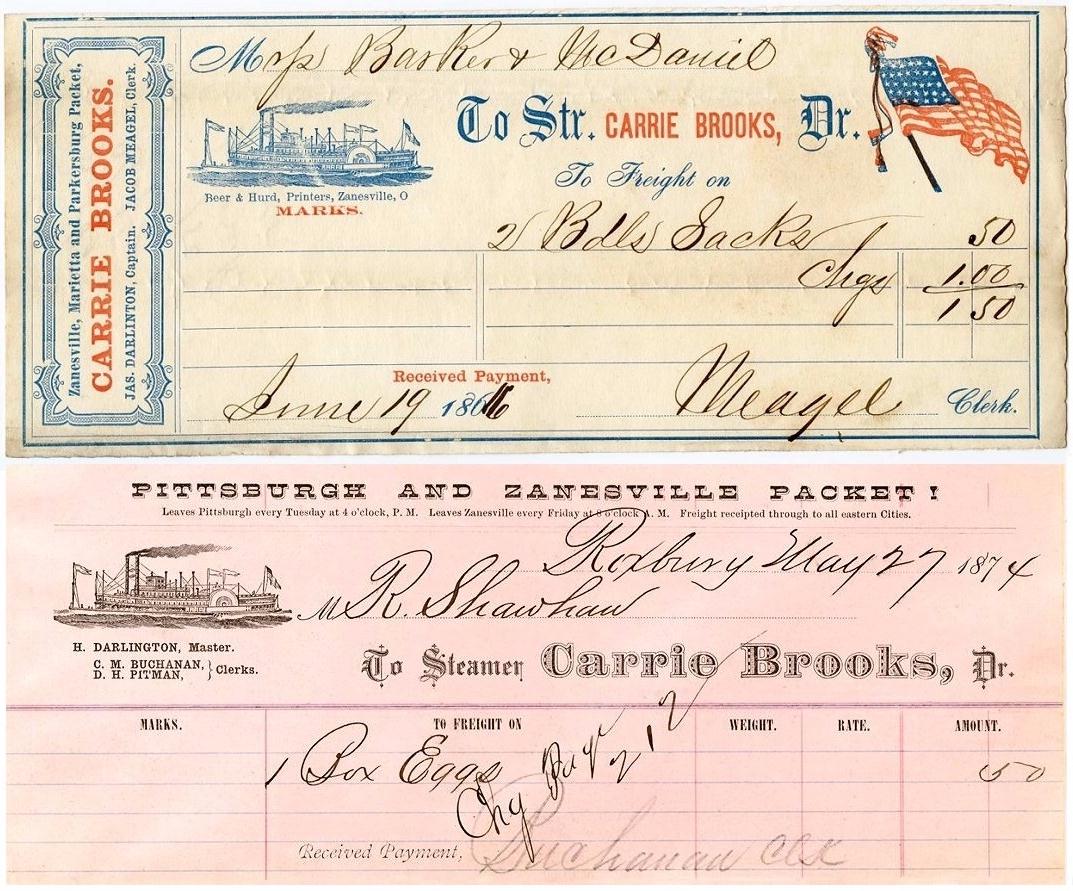 Zanesville, Marietta and Parkersburg Packet,
CARRIE BROOKS.
JAS. DARLINTON, Captain. JACOB MEAGEL, Clerk.
Mess Barker & McDaniel
To Str. CARRIE BROOKS, Dr.
To Freight on
Beer & Hurd, Printers, Zanesville, O
MARKS.
2 Bdls Sacks 50
Chgs 1.00
1 50
Received Payment,
June 19 1866 Meagel Clerk.
PITTSBURGH AND ZANESVILLE PACKET!
Leaves Pittsburgh every Tuesday at 4 o'clock, P. M. Leaves Zanesville every Friday at 8 o'clock A. M. Freight receipted through to all eastern Cities.
Roxbury May 27 1874
M R. Shawhan
H. DARLINGTON, Master.
C. M. BUCHANAN,
D. H. PITMAN, } Clerks.
To Steamer Carrie Brooks, Dr.
MARKS. TO FREIGHT ON WEIGHT. RATE. AMOUNT.
1 Box Eggs 50
Chg Page 212
Received Payment, Buchanan Clk